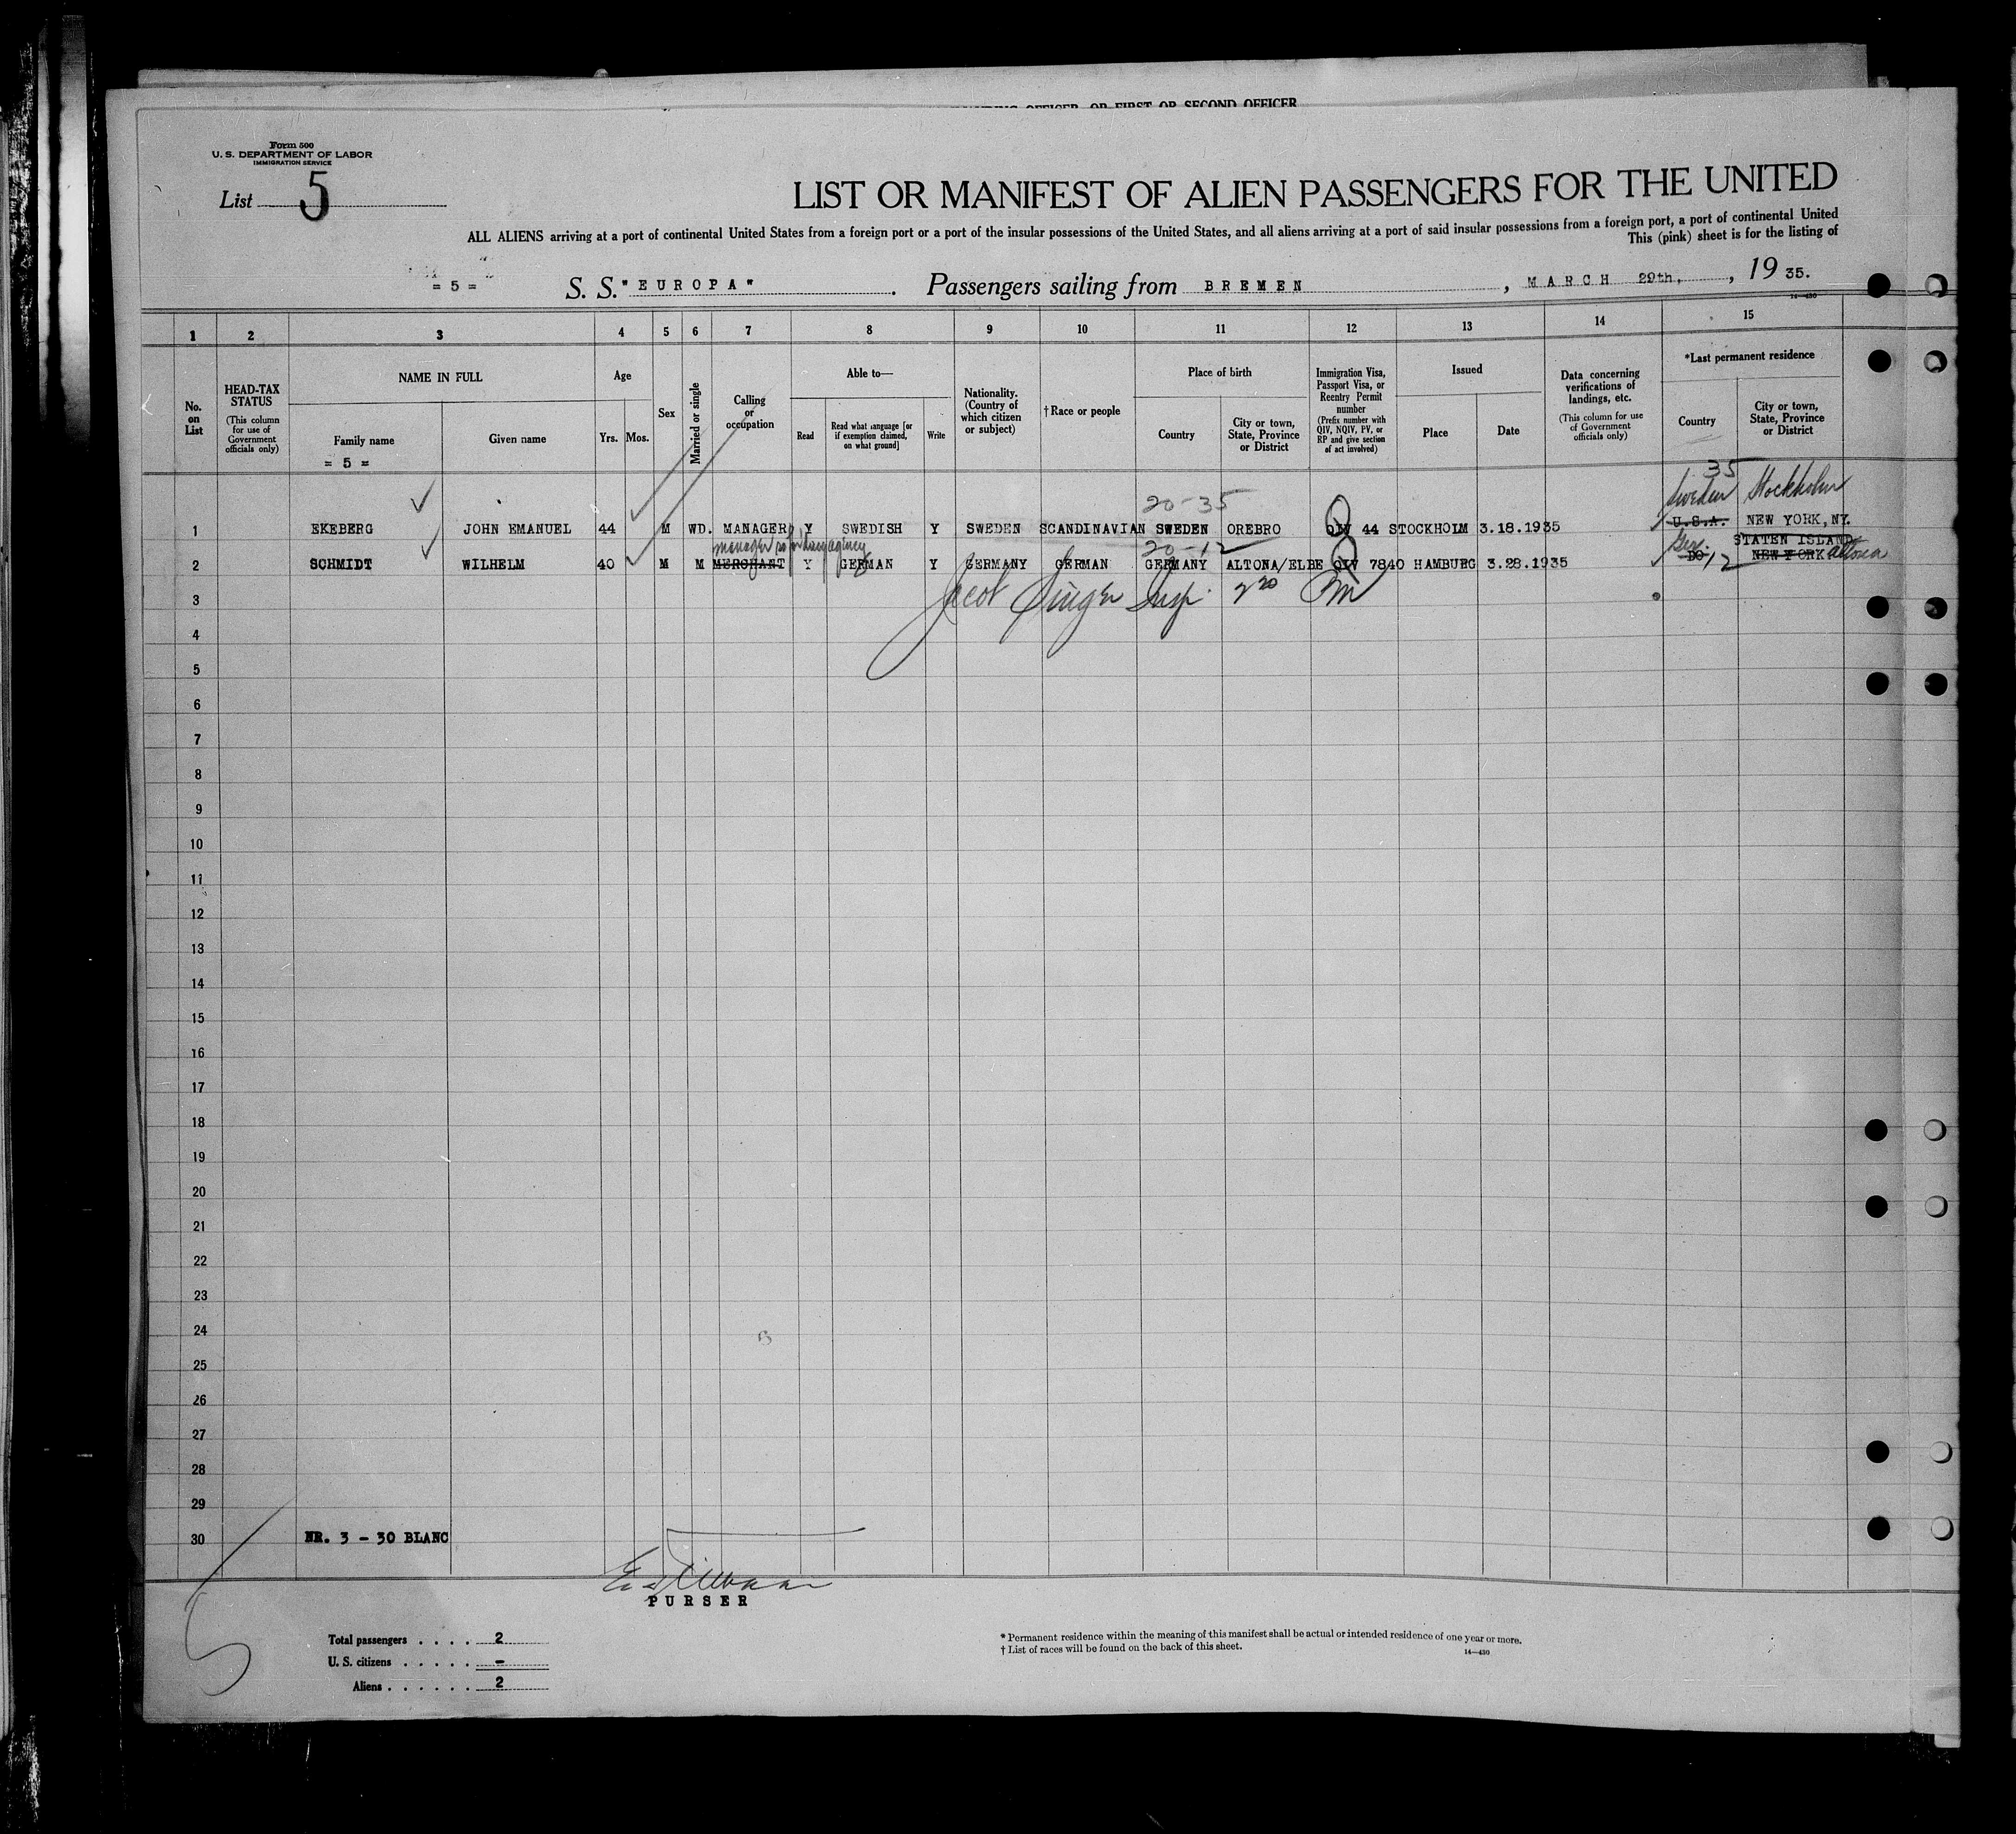 NING OFFICER, OR FIRST OR SECOND OFFICER
Form 500
U. S. DEPARTMENT OF LABOR
IMMIGRATION SERVICE
List 5
LIST OR MANIFEST OF ALIEN PASSENGERS FOR THE UNITED
ALL ALIENS arriving at a port of continental United States from a foreign port or a port of the insular possessions of the United States, and all aliens arriving at a port of said insular possessions from a foreign port, a port of continental United
This (pink) sheet is for the listing of
= 5 = S. S. "EUROPA". Passengers sailing from BREMEN, MARCH 29th, 1935.
14—430
1 2 3 4 5 6 7 8 9 10 11 12 13 14 15
No. on List
HEAD-TAX STATUS
(This column for use of Government officials only)
NAME IN FULL
Family name
= 5 =
Given name
Age
Yrs. Mos.
Sex
Married or single
Calling or occupation
Able to—
Read
Read what language [or if exemption claimed, on what ground]
Write
Nationality. (Country of which citizen or subject)
†Race or people
Place of birth
Country
City or town, State, Province or District
Immigration Visa, Passport Visa, or Reentry Permit number
(Prefix number with QIV, NQIV, PV, or RP and give section of act involved)
Issued
Place
Date
Data concerning verifications of landings, etc.
(This column for use of Government officials only)
*Last permanent residence
Country
City or town, State, Province or District
35
20-35 Sweden Stockholm
1 EKEBERG JOHN EMANUEL 44 M WD. MANAGER Y SWEDISH Y SWEDEN SCANDINAVIAN SWEDEN OREBRO QIV 44 STOCKHOLM 3.18.1935 U.S.A. NEW YORK, NY.
manager agency 20-12 Ger. STATEN ISLAND
2 SCHMIDT WILHELM 40 M M MERCHANT Y GERMAN Y GERMANY GERMAN GERMANY ALTONA/ELBE QIV 7840 HAMBURG 3.28.1935 DO 12 NEW YORK Altona
3 Jacob Singer Insp. 2 20 PM
4
5
6
7
8
9
10
11
12
13
14
15
16
17
18
19
20
21
22
23
24
25
26
27
28
29
30 NR. 3 - 30 BLANC
PURSER
Total passengers . . . . 2
U. S. citizens . . . . . –
Aliens . . . . . . 2
* Permanent residence within the meaning of this manifest shall be actual or intended residence of one year or more.
† List of races will be found on the back of this sheet.
14—430
5